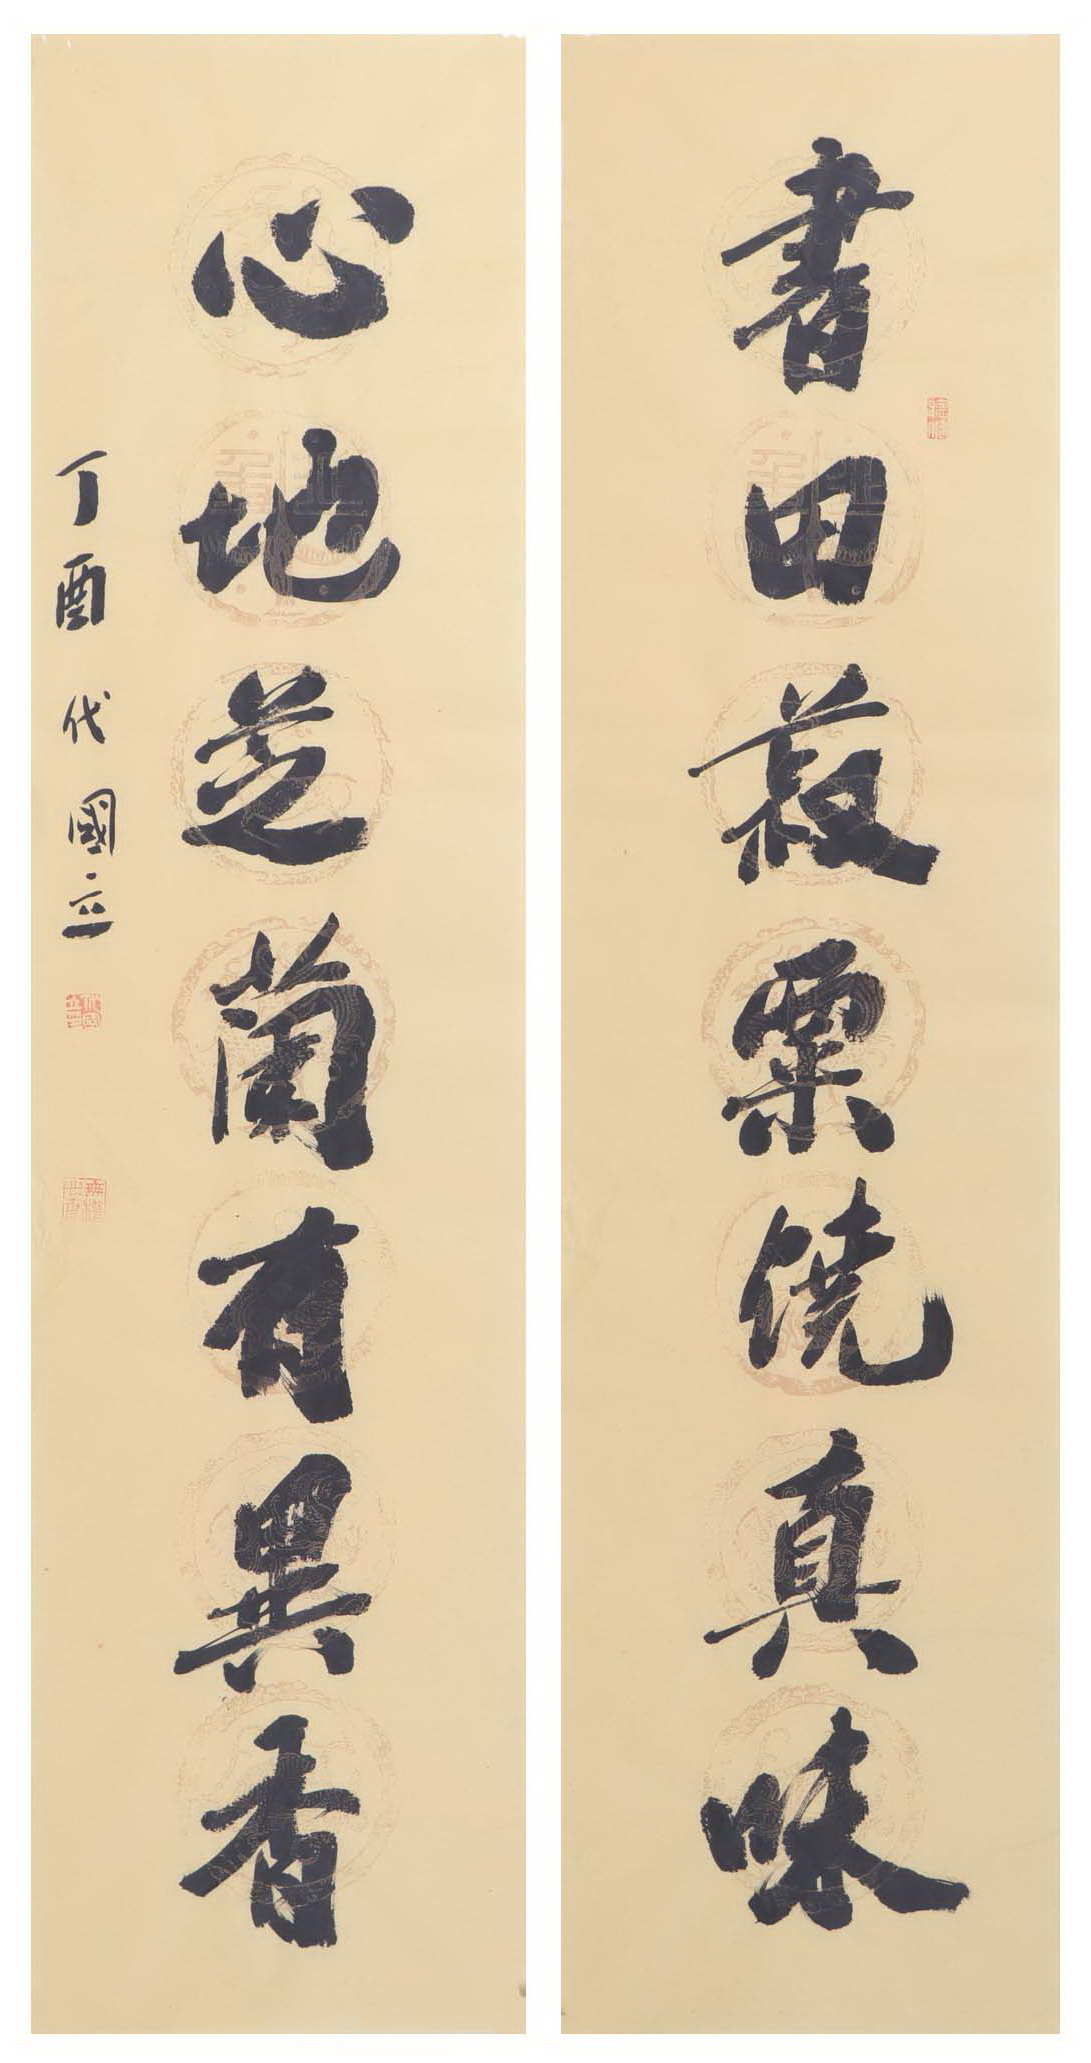 書田菽粟饶真味
心地芝蘭有異香
丁酉 代國立